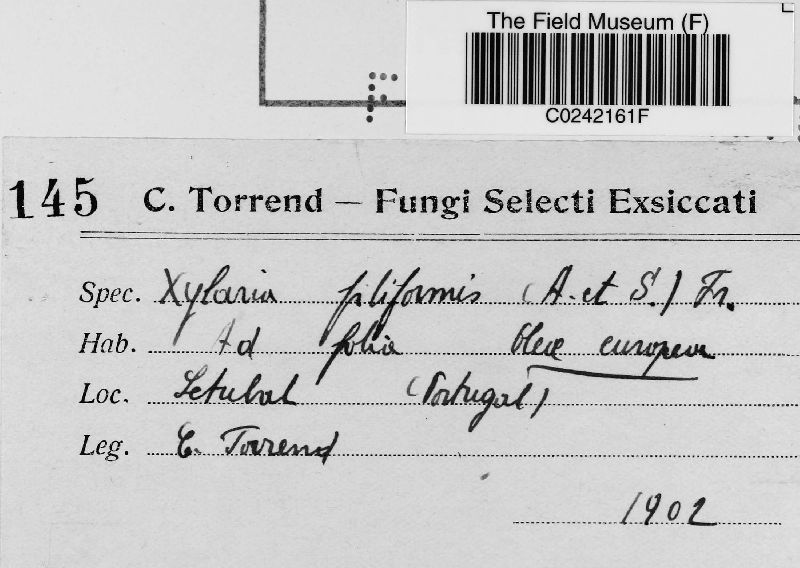 The Field Museum (F)
C0242161F
145 C. Torrend — Fungi Selecti Exsiccati
Spec. Xylaria filiformis (A. et S.) Fr.
Hab. Ad folia Oleae europeae
Loc. Setubal (Portugal)
Leg. C. Torrend
1902